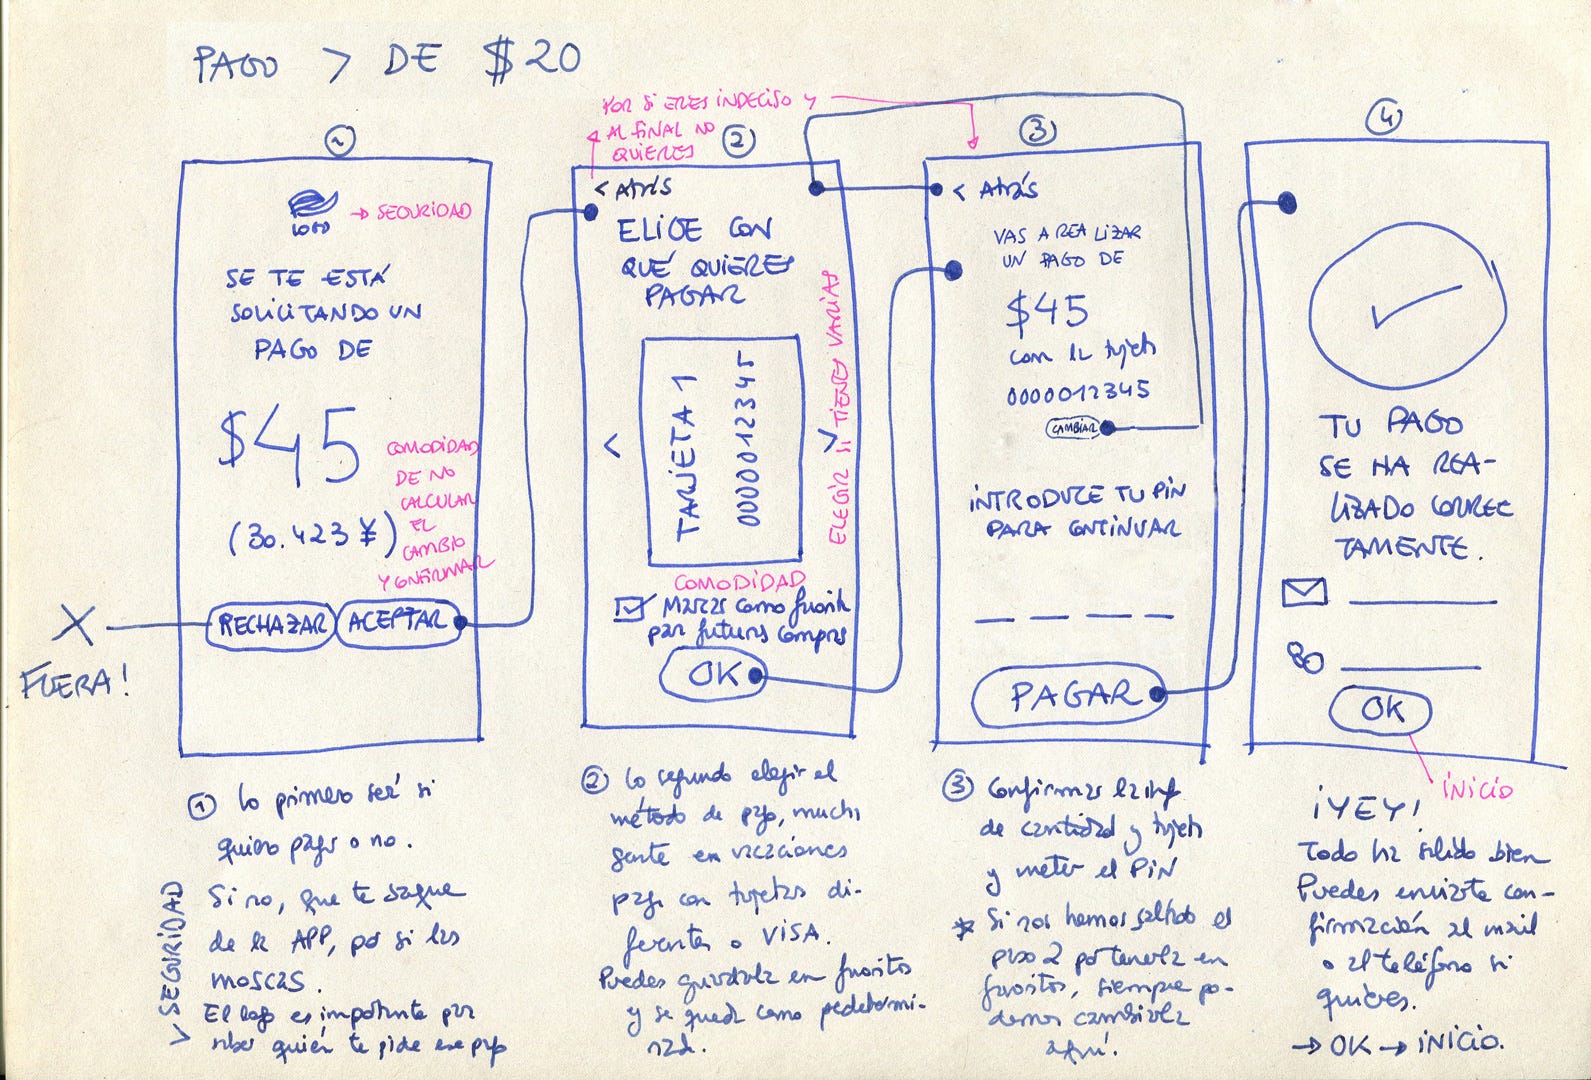 PAGO > DE $20
1
LOGO
→ SEGURIDAD
SE TE ESTÁ
SOLICITANDO UN
PAGO DE
$45
(30.423 ¥)
COMODIDAD
DE NO
CALCULAR
EL
CAMBIO
Y CONFIRMAR
RECHAZAR
ACEPTAR
X
FUERA!
POR SI ERES INDECISO Y
AL FINAL NO
QUIERES
2
< Atrás
ELIGE CON
QUÉ QUIERES
PAGAR
<
TARJETA 1
0000012345
>
ELEGIR SI TIENES VARIAS
COMODIDAD
Marcar como favorita
para futuras compras
OK
3
< Atrás
VAS A REALIZAR
UN PAGO DE
$45
con la tarjeta
0000012345
CAMBIAR
INTRODUCE TU PIN
PARA CONTINUAR
PAGAR
4
TU PAGO
SE HA REA-
LIZADO CORREC
TAMENTE.
OK
INICIO
1 Lo primero será si
quiero pagar o no.
Si no, que te saque
de la APP, por si las
moscas.
El logo es importante para
saber quién te pide ese pago
> SEGURIDAD
2 Lo segundo elegir el
método de pago, mucha
gente en vacaciones
paga con tarjetas di-
ferentes o VISA.
Puedes guardarla en favoritos
y se queda como predetermi-
nada.
3 Confirmar la inf
de cantidad y tarjeta
y meter el PIN
* Si nos hemos saltado el
paso 2 por tenerla en
favoritos, siempre po-
demos cambiarla
aquí.
¡YEY!
Todo ha salido bien
Puedes enviarte con-
firmación al mail
o al teléfono si
quieres.
→ OK → INICIO.